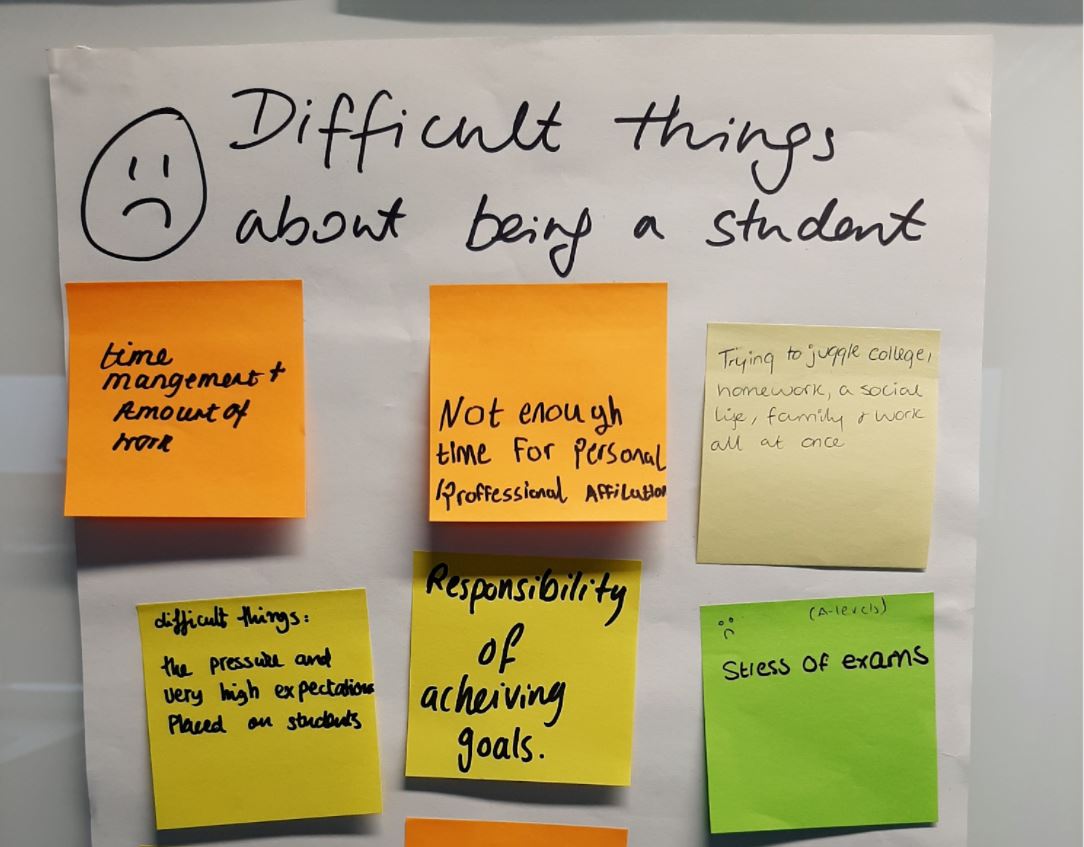 Difficult things
about being a student
time
mangement +
Amount of
work
Not enough
time for Personal
/Proffessional Affiliation
Trying to juggle college,
homework, a social
life, family & work
all at once
difficult things:
the pressure and
very high expectations
Placed on students
Responsibility
of
acheiving
goals.
(A-levels)
Stress of exams